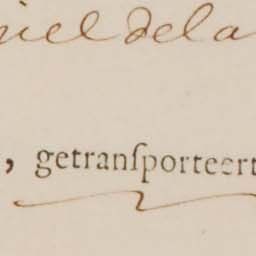 iel dela
, getransporteert